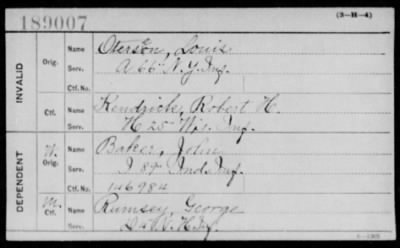 189007
(3-H-4)
INVALID
Orig.
Name Oterson, Louis
Serv. A 66 N.Y. Inf.
Ctf. No.
Ctf.
Name Kendrick, Robert H.
Serv. H 25 Wis. Inf.
DEPENDENT
W. Orig.
Name Baker, John
Serv. I 89 Ind. Inf.
Ctf. No. 146984
M. Ctf.
Name Rumsey George
Serv. Inf.